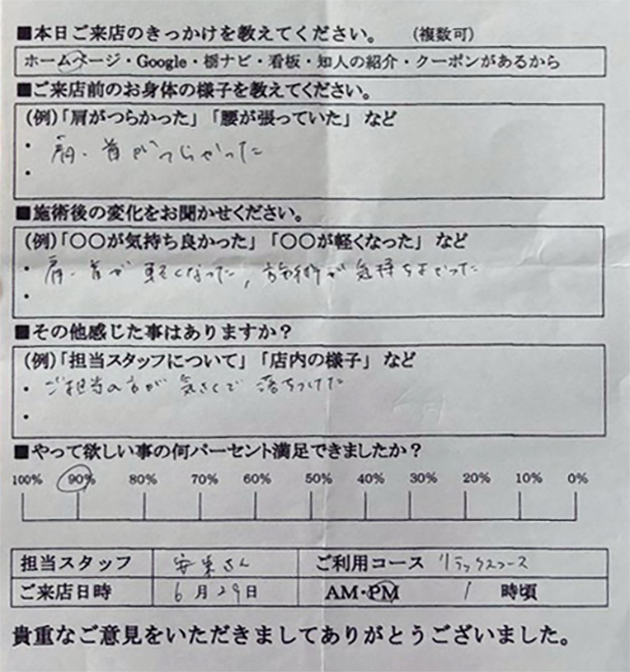 ■本日ご来店のきっかけを教えてください。 （複数可）
ホームページ・Google・栃ナビ・看板・知人の紹介・クーポンがあるから
■ご来店前のお身体の様子を教えてください。
(例)「肩がつらかった」「腰が張っていた」など
・ 肩、首がつらかった
・
■施術後の変化をお聞かせください。
(例)「〇〇が気持ち良かった」「〇〇が軽くなった」など
・ 肩、首が軽くなった，施術が気持ちよかった
・
■その他感じた事はありますか？
(例)「担当スタッフについて」「店内の様子」など
・ ご担当の方が気さくで落ちつけた
・
■やって欲しい事の何パーセント満足できましたか？
100% 90% 80% 70% 60% 50% 40% 30% 20% 10% 0%
担当スタッフ 安東さん ご利用コース リラックスコース
ご来店日時 6月29日 AM・PM 1 時頃
貴重なご意見をいただきましてありがとうございました。